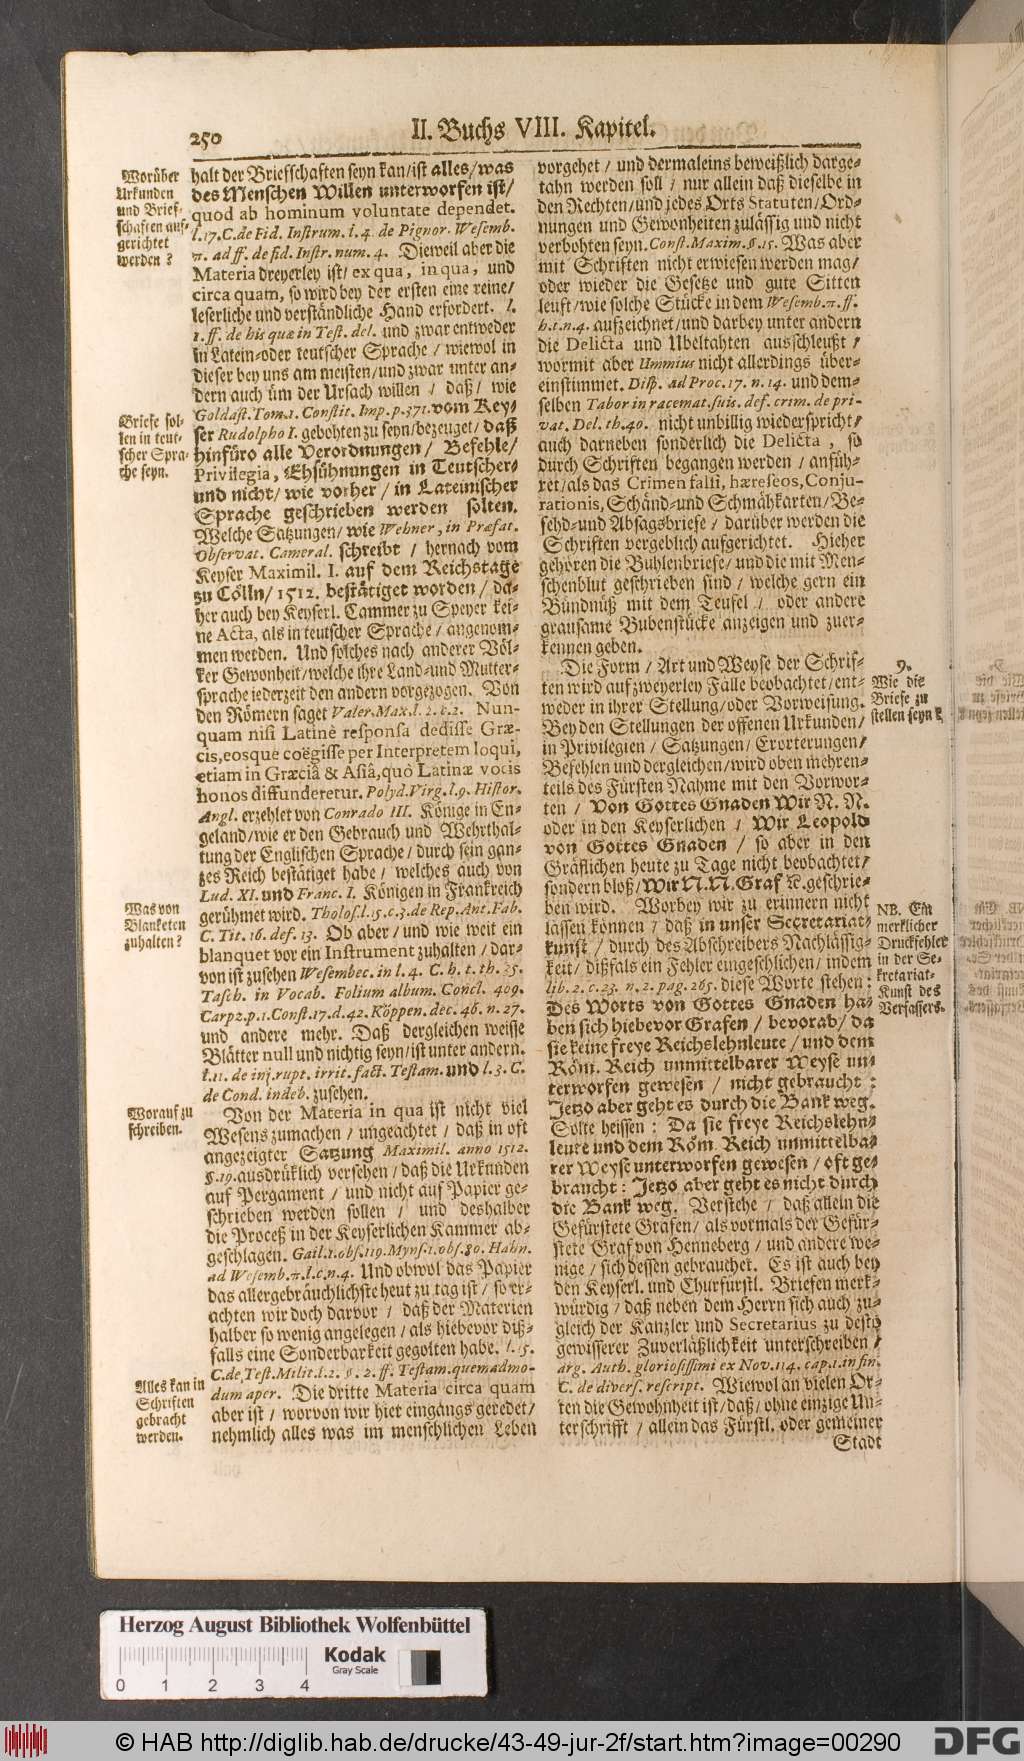 250
II. Buchs VIII. Kapitel.
Worüber
Urkunden
und Brief-
schaften auf-
gerichtet
werden?
halt der Briefschaften seyn kan/ist alles/was
des Menschen Willen unterworfen ist/
quod ab hominum voluntate dependet.
l.17.C.de Fid. Instrum. l.4. de Pignor. Wesemb.
π. ad ff. de fid. Instr. num. 4. Dieweil aber die
Materia dreyerley ist/ ex qua, in qua, und
circa quam, so wird bey der ersten eine reine/
leserliche und verständliche Hand erfordert. l.
1. ff. de his quæ in Test. del. und zwar entweder
in Latein-oder teutscher Sprache / wiewol in
dieser bey uns am meisten/und zwar unter an-
dern auch üm der Ursach willen / daß/ wie
Briefe sol-
len in teut-
scher Spra-
che seyn.
Goldast.Tom.1. Constit. Imp.p.371. vom Key-
ser Rudolpho I. gebohten zu seyn/bezeuget/ daß
hinfüro alle Verordnungen / Befehle/
Privilegia, Ehsühnungen in Teutscher-
und nicht/ wie vorher / in Lateinischer
Sprache geschrieben werden solten.
Welche Satzungen/ wie Wehner, in Præfat.
Observat. Cameral. schreibt / hernach vom
Keyser Maximil. I. auf dem Reichstage
zu Cölln/ 1512. bestätiget worden / da-
her auch bey Keyserl. Cammer zu Speyer kei-
ne Acta, als in teutscher Sprache / angenom-
men werden. Und solches nach anderer Völ-
ker Gewonheit/welche ihre Land-und Mutter-
sprache iederzeit den andern vorgezogen. Von
den Römern saget Valer.Max.l.2.c.2. Nun-
quam nisi Latinè responsa dedisse Græ-
cis,eosque coëgisse per Interpretem loqui,
etiam in Græciâ & Asiâ,quò Latinæ vocis
honos diffunderetur. Polyd.Virg.l.9. Histor.
Angl. erzehlet von Conrado III. Könige in En-
geland/wie er den Gebrauch und Wehrthal-
tung der Englischen Sprache / durch sein gan-
zes Reich bestätiget habe / welches auch von
Lud. XI. und Franc. I. Königen in Frankreich
Was von
Blanketen
zuhalten?
gerühmet wird. Tholos.l.15.c.3.de Rep.Ant.Fab.
C. Tit. 16. def. 13. Ob aber / und wie weit ein
blanquet vor ein Instrument zuhalten / dar-
von ist zusehen Wesembec. in l. 4. C. h. t. th. 25.
Tasch. in Vocab. Folium album. Concl. 409.
Carpz.p.1.Const.17.d.42. Köppen. dec. 46. n. 27.
und andere mehr. Daß dergleichen weisse
Blätter null und nichtig seyn/ist unter andern.
l.11. de inj.rupt. irrit. fact. Testam. und l. 3. C.
de Cond. indeb. zusehen.
Worauf zu
schreiben.
Von der Materia in qua ist nicht viel
Wesens zumachen / ungeachtet / daß in oft
angezeigter Satzung Maximil. anno 1512.
§.19.ausdrüklich versehen / daß die Urkunden
auf Pergament / und nicht auf Papier ge-
schrieben werden sollen / und deshalber
die Proceß in der Keyserlichen Kammer ab-
geschlagen. Gail.1.obs.119.Myns.1.obs.80. Hahn.
ad Wesemb.π.l.c.n.4. Und obwol das Papier
das allergebräuchlichste heut zu tag ist / so er-
achten wir doch darvor / daß der Materien
halber so wenig angelegen / als hiebevor diß-
falls eine Sonderbarkeit gegolten habe. l. 15.
Alles kan in
Schriften
gebracht
werden.
C.de Test.Milit.l.2. §. 2. ff. Testam.quemadmo-
dum aper. Die dritte Materia circa quam
aber ist / worvon wir hier eingangs geredet/
nehmlich alles was im menschlichen Leben
vorgehet / und dermaleins beweißlich darge-
tahn werden soll / nur allein daß dieselbe in
den Rechten/und jedes Orts Statuten/Ord-
nungen und Gewonheiten zulässig und nicht
verbohten seyn. Const.Maxim.§.15. Was aber
mit Schriften nicht erwiesen werden mag/
oder wieder die Gesetze und gute Sitten
leuft/wie solche Stücke in dem Wesemb.π.ff.
h.t.n.4. aufzeichnet/und darbey unter andern
die Delicta und Ubeltahten ausschleußt /
wormit aber Ummius nicht allerdings über-
einstimmet. Disp. ad Proc. 17. n. 14. und dem-
selben Tabor in racemat.suis. def. crim. de pri-
vat. Del. th.40. nicht unbillig wiederspricht/
auch darneben sonderlich die Delicta, so
durch Schriften begangen werden / anfüh-
ret/als das Crimen falsi, hæreseos, Conju-
rationis, Schänd-und Schmähkarten/ Be-
fehd-und Absagsbriefe / darüber werden die
Schriften vergeblich aufgerichtet. Hieher
gehören die Buhlenbriefe/ und die mit Men-
schenblut geschrieben sind / welche gern ein
Bündnüß mit dem Teufel / oder andere
grausame Bubenstücke anzeigen und zuer-
kennen geben.
9.
Wie die
Briefe zu
stellen seyn?
Die Form / Art und Weyse der Schrif-
ten wird auf zweyerley Fälle beobachtet/ent-
weder in ihrer Stellung/oder Vorweisung.
Bey den Stellungen der offenen Urkunden/
in Privilegien / Satzungen/ Erorterungen/
Befehlen und dergleichen/wird oben mehren-
teils des Fürsten Nahme mit den Vorwor-
ten / Von Gottes Gnaden Wir N. N.
oder in den Keyserlichen / Wir Leopold
von Gottes Gnaden / so aber in den
Gräflichen heute zu Tage nicht beobachtet/
sondern bloß/Wir N.N.Graf ꝛc.geschrie-
NB. Ein
merklicher
Druckfehler
in der Se-
kretariat-
Kunst des
Verfassers.
ben wird. Worbey wir zu erinnern nicht
lassen können / daß in unser Secretariat-
kunst / durch des Abschreibers Nachlässig-
keit/ dißfals ein Fehler eingeschlichen/ indem
lib. 2. c.23. n. 2. pag. 265. diese Worte stehen:
Des Worts von Gottes Gnaden ha-
ben sich hiebevor Grafen / bevorab/ da
sie keine freye Reichslehnleute / und dem
Röm. Reich unmittelbarer Weyse un-
terworfen gewesen / nicht gebraucht:
Jetzo aber geht es durch die Bank weg.
Solte heissen: Da sie freye Reichslehn-
leute und dem Röm. Reich unmittelba-
rer Weyse unterworfen gewesen / oft ge-
braucht: Jetzo aber geht es nicht durch
die Bank weg. Verstehe / daß allein die
Gefürstete Grafen/ als vormals der Gefür-
stete Graf von Henneberg / und andere we-
nige / sich dessen gebrauchet. Es ist auch bey
den Keyserl. und Churfürstl. Briefen merk-
würdig / daß neben dem Herrn sich auch zu-
gleich der Kanzler und Secretarius zu desto
gewisserer Zuverläßlichkeit unterschreiben /
arg. Auth. gloriosissimi ex Nov.114. cap.1.in fin.
C. de divers. rescript. Wiewol an vielen Or-
ten die Gewohnheit ist/ daß/ ohne einzige Un-
terschrifft / allein das Fürstl. oder gemeiner
Stadt
Herzog August Bibliothek Wolfenbüttel
Kodak
Gray Scale
0 1 2 3 4
© HAB http://diglib.hab.de/drucke/43-49-jur-2f/start.htm?image=00290
DFG